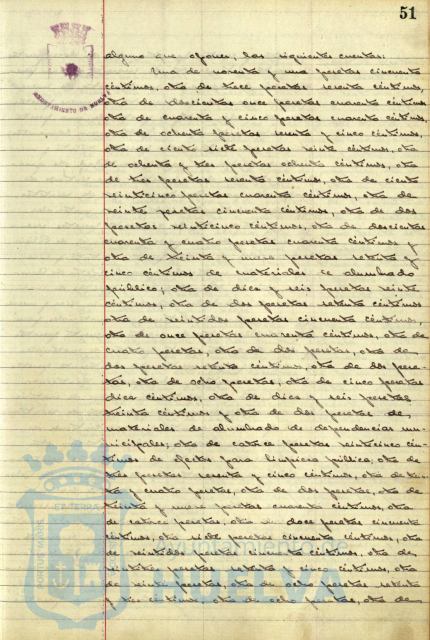 51
AYUNTAMIENTO DE HUELVA
alguno que oponer, las siguientes cuentas:
Una de noventa y una pesetas cincuenta
céntimos, otra de trece pesetas sesenta céntimos,
otra de doscientas once pesetas cuarenta céntimos
otra de cuarenta y cinco pesetas cuarenta céntimos,
otra de ochenta pesetas sesenta y cinco céntimos,
otra de ciento siete pesetas veinte céntimos, otra
de ochenta y tres pesetas ochenta céntimos, otra
de tres pesetas sesenta céntimos, otra de ciento
veinticinco pesetas cuarenta céntimos, otra de
veinte pesetas cincuenta céntimos, otra de dos
pesetas veinticinco céntimos, otra de doscientas
cuarenta y cuatro pesetas cuarenta céntimos y
otra de treinta y nueve pesetas setenta y
cinco céntimos de materiales de alumbrado
público; otra de diez y seis pesetas veinte
céntimos, otra de dos pesetas setenta céntimos
otra de veintidos pesetas cincuenta céntimos,
otra de once pesetas cuarenta céntimos, otra de
cuatro pesetas, otra de dos pesetas, otra de
dos pesetas setenta céntimos, otra de dos pese-
tas, otra de ocho pesetas, otra de cinco pesetas
diez céntimos, otra de diez y seis pesetas
treinta céntimos y otra de dos pesetas de
materiales de alumbrado de dependencias mu-
nicipales; otra de catorce pesetas veinticinco cén-
timos de efectos para limpieza pública, otra de
tres pesetas sesenta y cinco céntimos, otra de trein-
ta y cuatro pesetas, otra de dos pesetas, otra de
treinta y nueve pesetas cuarenta céntimos, otra
de catorce pesetas, otra de doce pesetas cincuenta
céntimos, otra siete pesetas cincuenta céntimos, otra
de veintidos pesetas cincuenta céntimos, otra de
veintitres pesetas setenta y cinco céntimos, otra
de veinte pesetas, otra de ocho pesetas setenta
y tres céntimos, otra de ocho pesetas, otra de
Ayuntamiento de
HUELVA